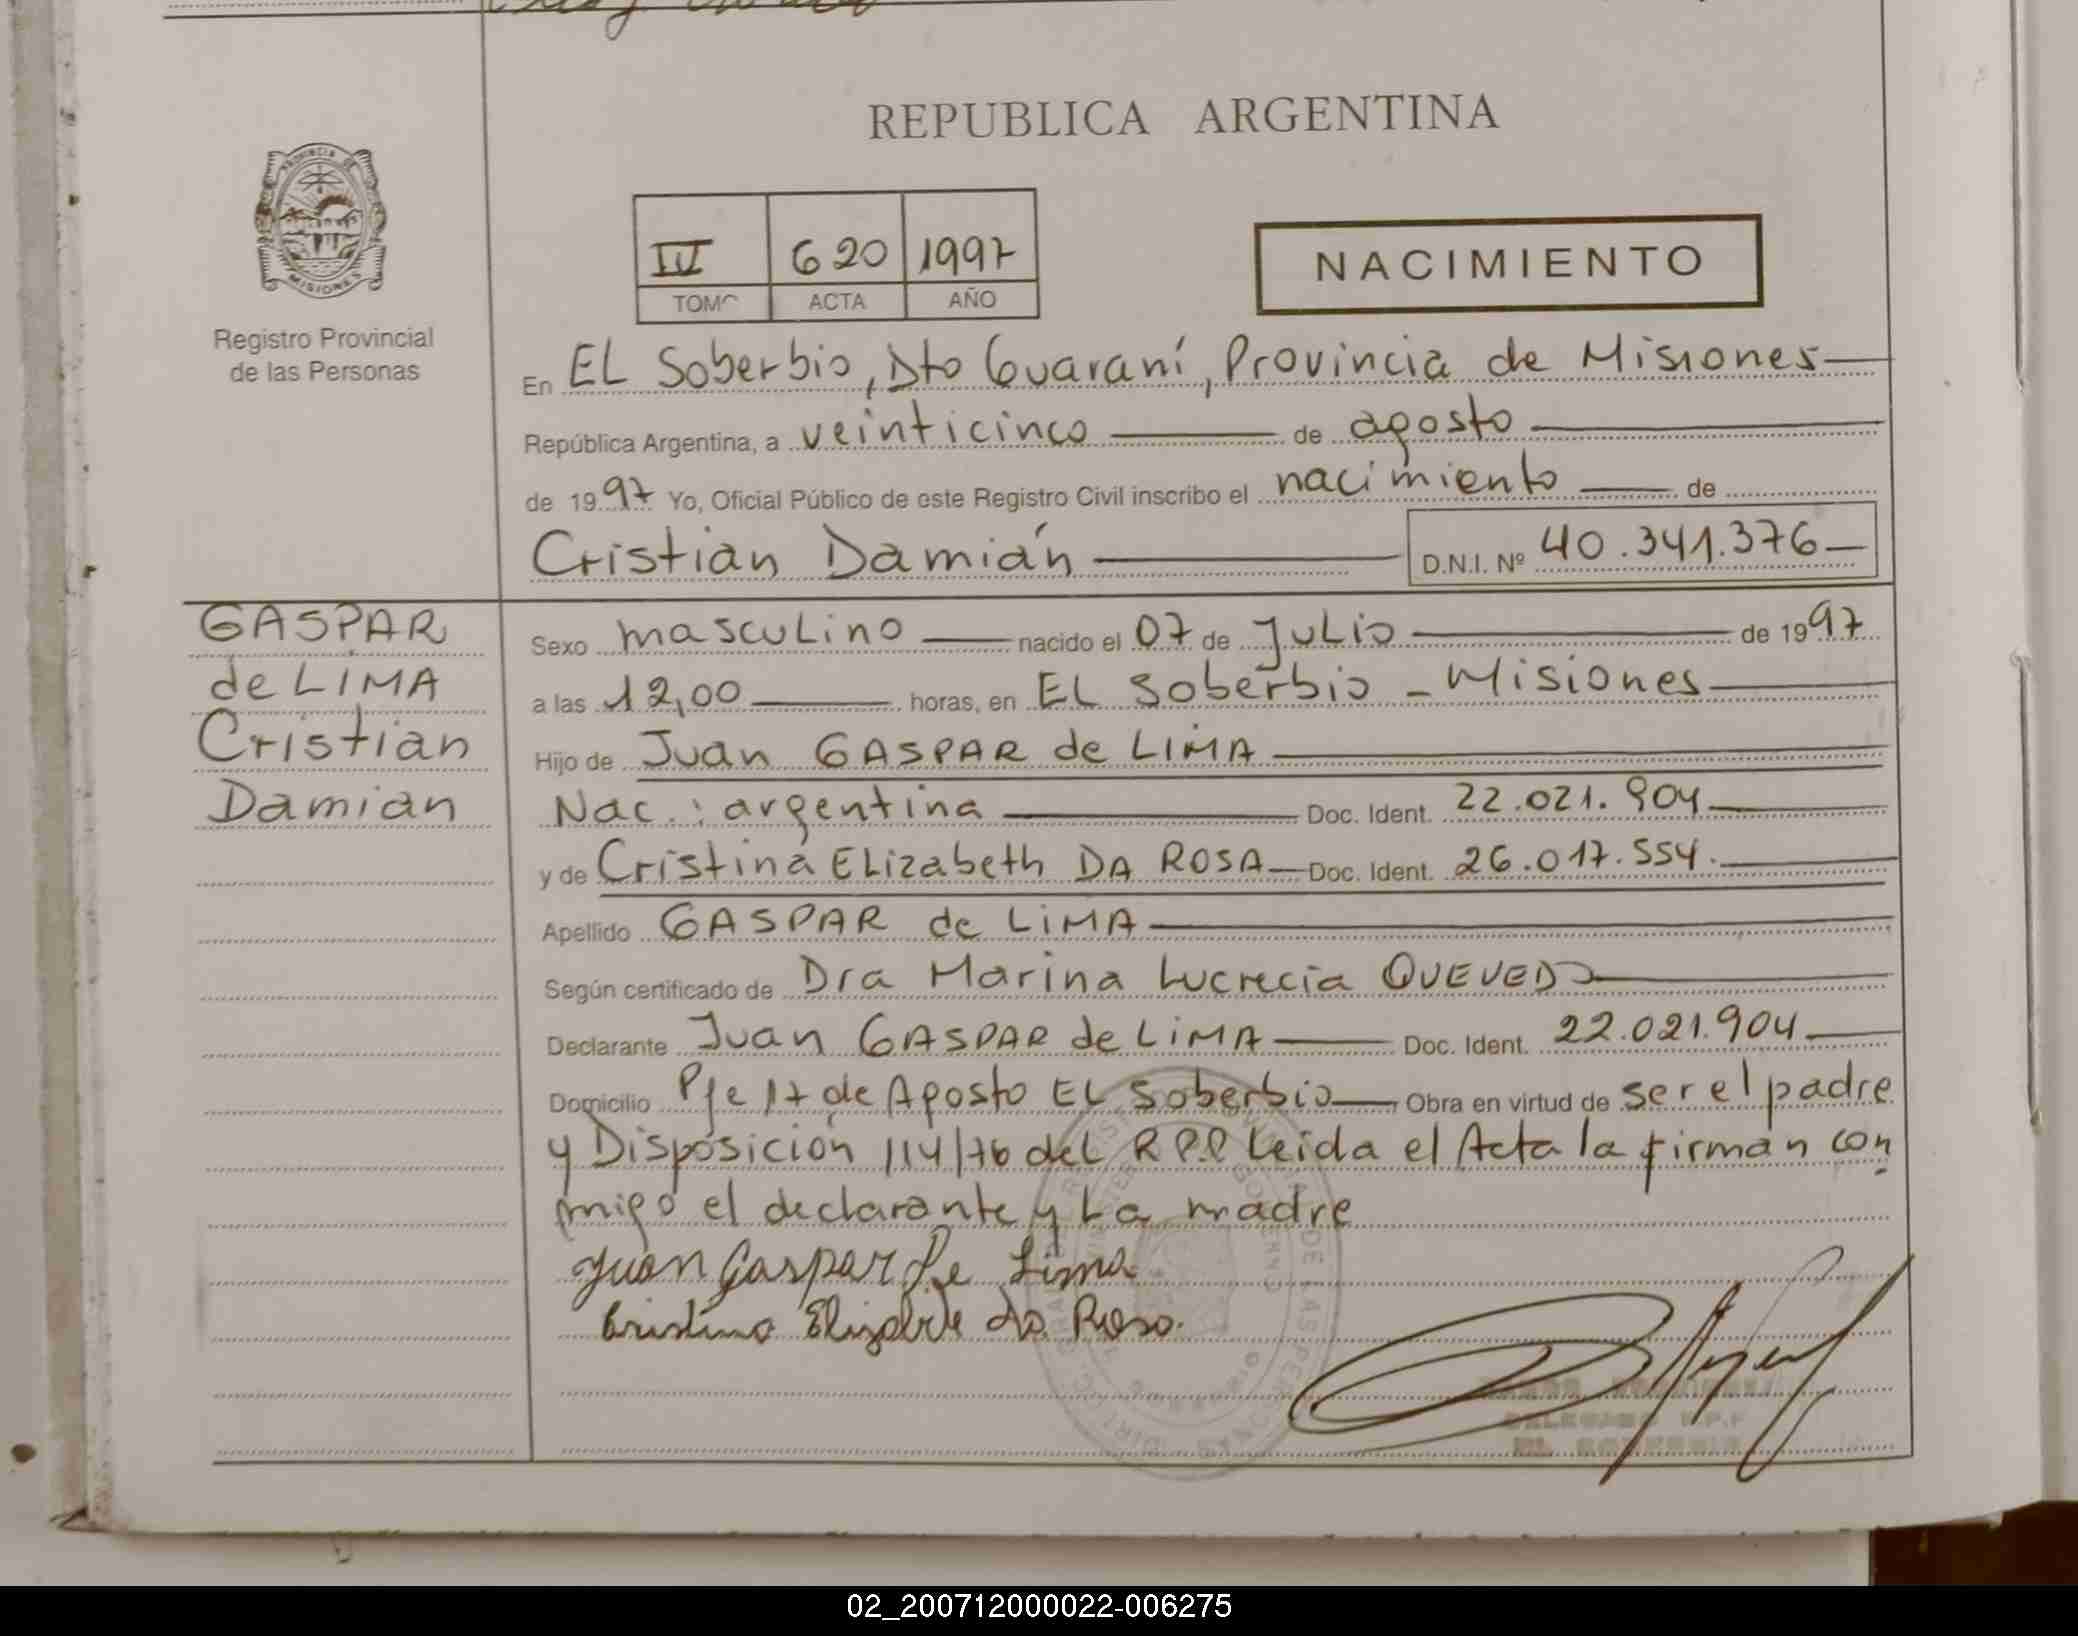 REPUBLICA ARGENTINA
PROVINCIA DE
MISIONES
Registro Provincial
de las Personas
IV 620 1997
TOMO ACTA AÑO
NACIMIENTO
En EL Soberbio, Dto Guaraní, Provincia de Misiones
República Argentina, a veinticinco de agosto
de 1997 Yo, Oficial Público de este Registro Civil inscribo el nacimiento de
Cristian Damián D.N.I. Nº 40.341.376
GASPAR
de LIMA
Cristian
Damian
Sexo masculino nacido el 07 de Julio de 1997
a las 12,00 horas, en EL Soberbio - Misiones
Hijo de Juan GASPAR de LIMA
Nac.: argentina Doc. Ident. 22.021.904
y de Cristina Elizabeth DA ROSA Doc. Ident. 26.017.554.
Apellido GASPAR de LiMA
Según certificado de Dra Marina Lucrecia QUEVEDO
Declarante Juan GASPAR de LiMA Doc. Ident. 22.021.904
Domicilio Pje 17 de Agosto EL Soberbio Obra en virtud de ser el padre
y Disposición 114/76 del R.P.P Leida el Acta la firman con
migo el declarante y La madre
Juan Gaspar De Lima
Cristina Elizabete da Rosa.
DELEGADO R.P.P
EL SOBERBIO
02_200712000022-006275